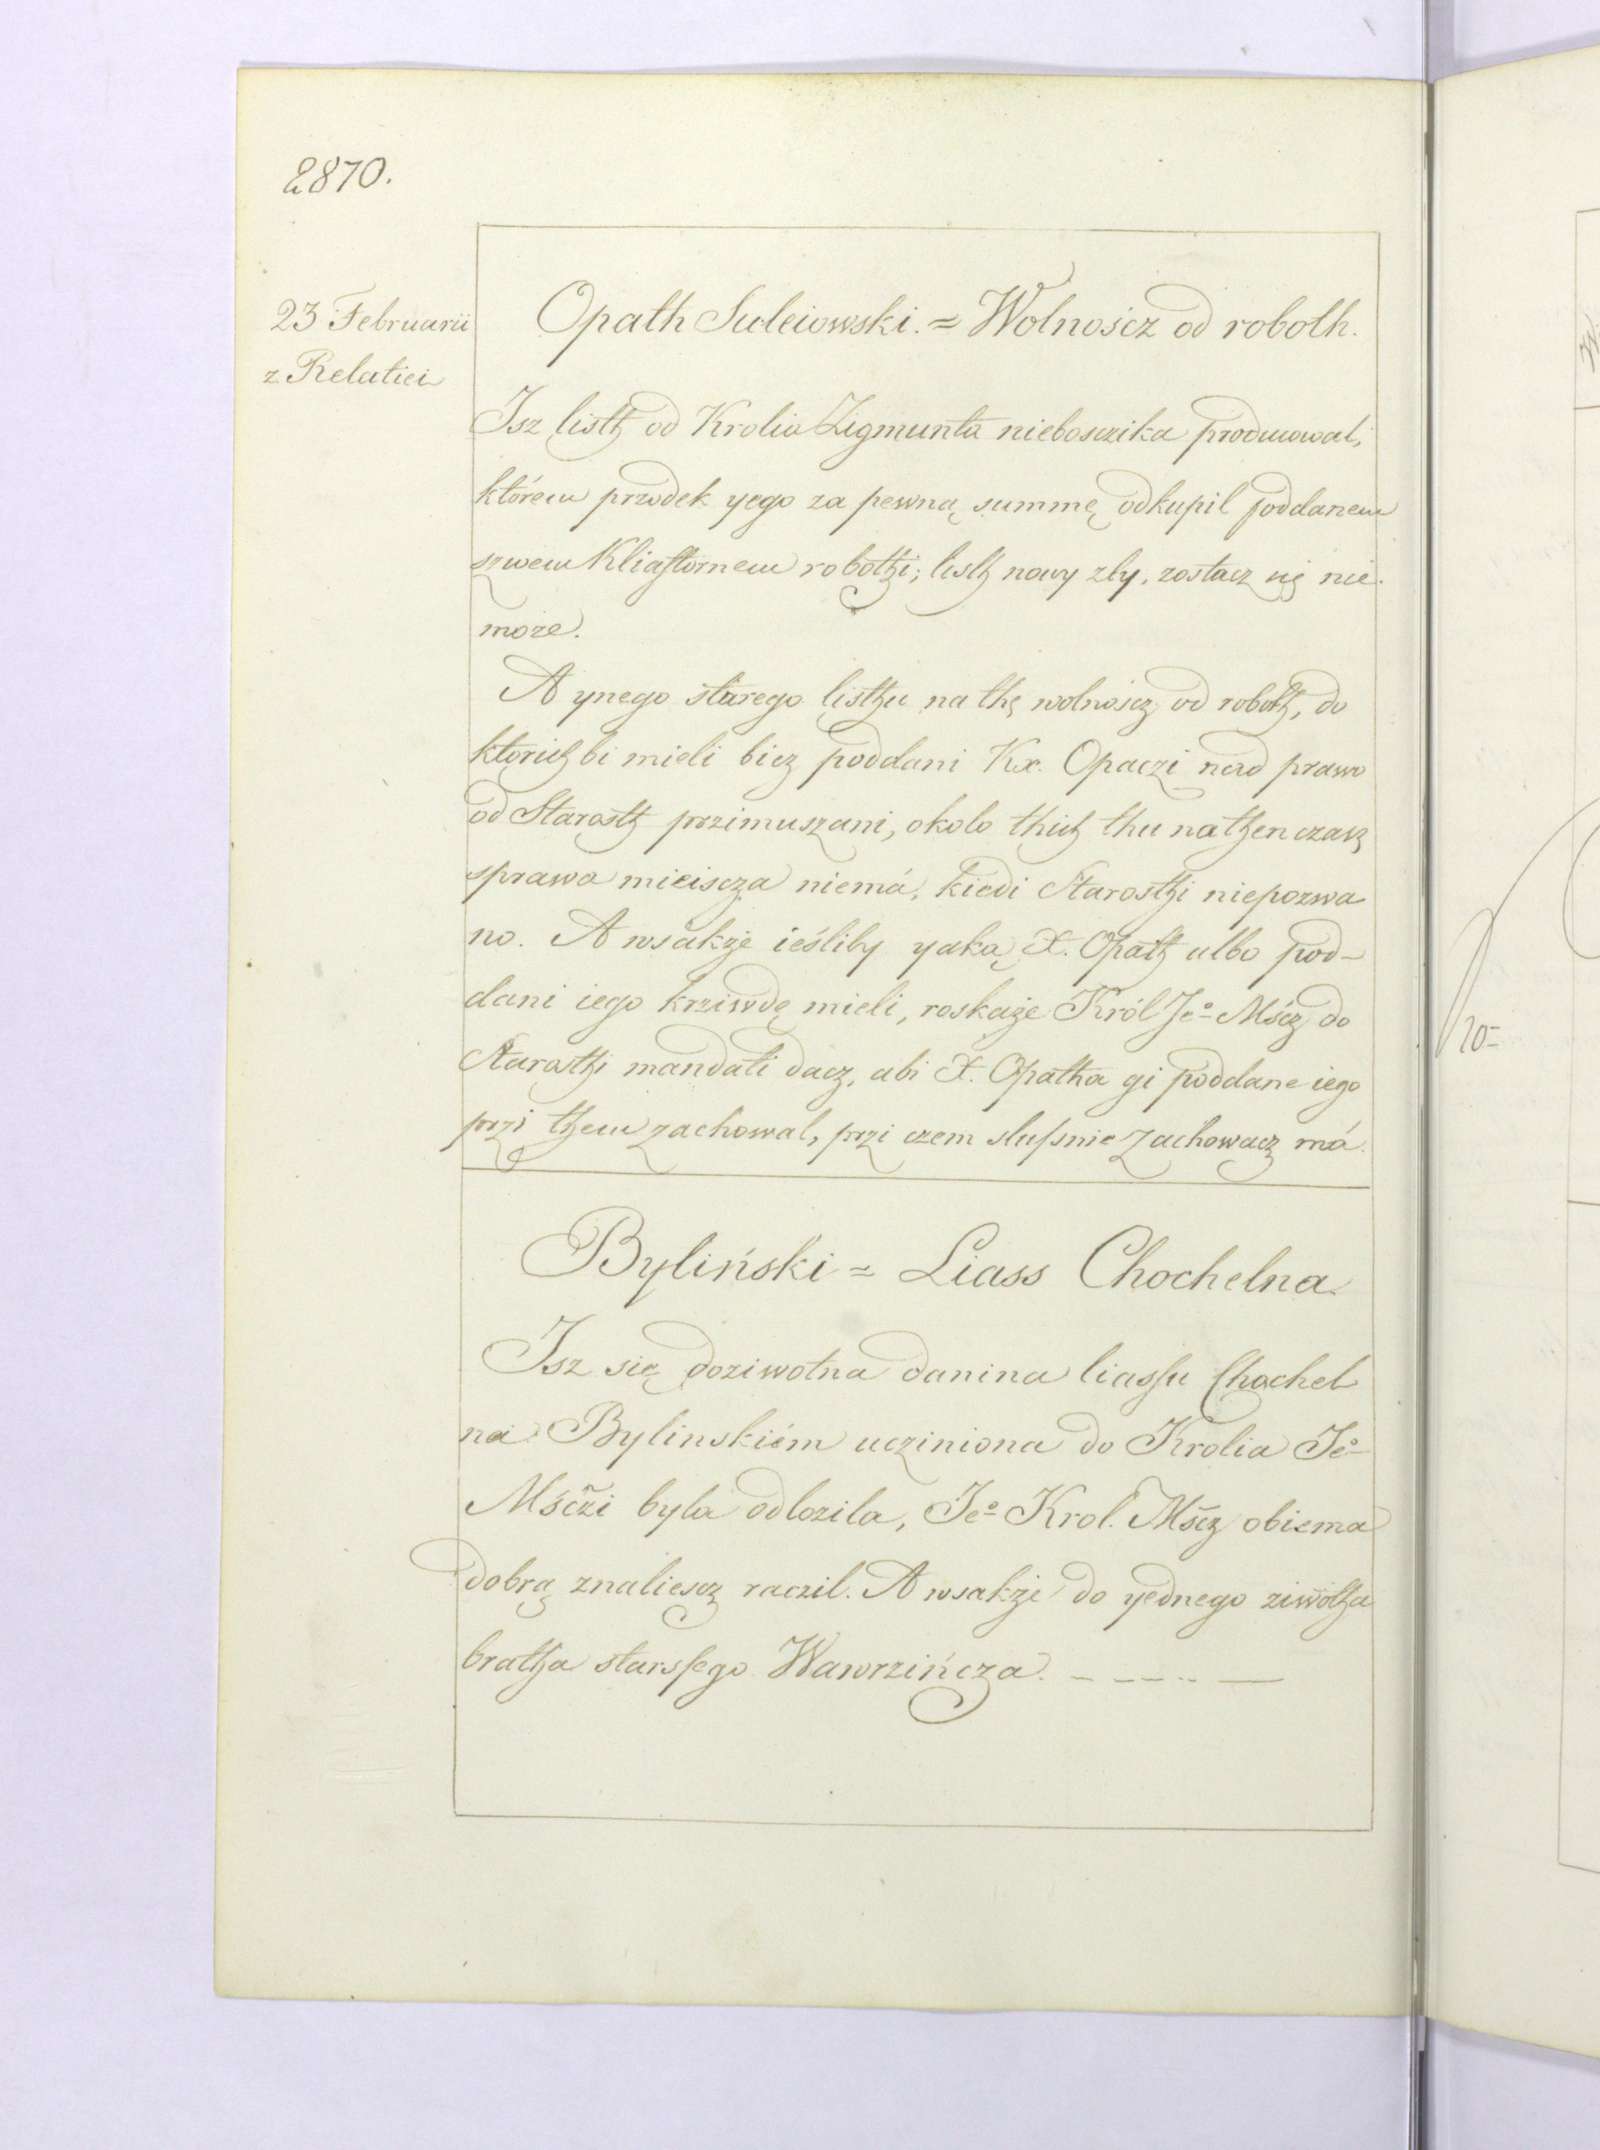 2870.
23 Februarii
z Relatiei
Opath Suleiowski. = Wolnoścz od roboth.
Isz listh od Krolia Zigmunta nieboszika producował,
którem przodek yego za pewną summę odkupil poddanem
szwem Kliasztornem robothi; listh nowy zły, zostacz się nie
może.
A ynego starego listhu na thę wolnoścz od roboth, do
ktorichbi mieli bicz poddani Kx. Opaczi nad prawo
od Starosth przimuszani, okolo thich thu nathen czasz
sprawa mieiscza niemá, kiedi Starosthi niepozwa
no. A wsakże ieśliby yaką X. Opath albo pod-
dani iego krziwdę mieli, roskaże Król Jeº Mścz do
Starosthi mandati dacz, abi X. Opatha gi poddane iego
przi them zachowal, przi czem slusznie zachowacz má.
Byliński = Liass Chochelna.
Isz się doziwotna danina liassu Chochel
na Bylinskiém ucziniona do Krolia Jeº
Mśczi byla odlozila, Jeº Krol. Mścz obiema
dobrą znaliescz raczil. A wsakże do yednego ziwotha
bratha starszego Wawrzińcza.
20